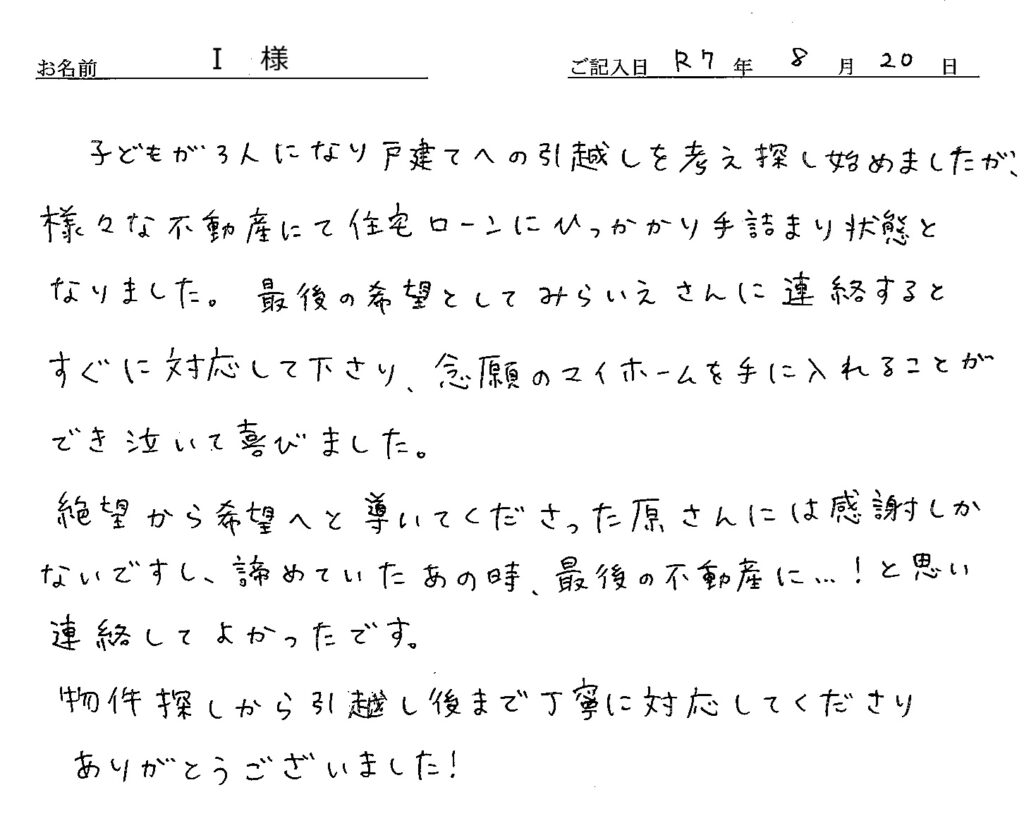 お名前 I 様 ご記入日 R7 年 8 月 20 日
子どもが3人になり戸建てへの引越しを考え探し始めましたが、
様々な不動産にて住宅ローンにひっかかり手詰まり状態と
なりました。最後の希望としてみらいえさんに連絡すると
すぐに対応して下さり、念願のマイホームを手に入れることが
でき泣いて喜びました。
絶望から希望へと導いてくださった原さんには感謝しか
ないですし、諦めていたあの時、最後の不動産に…!と思い
連絡してよかったです。
物件探しから引越し後まで丁寧に対応してくださり
ありがとうございました!